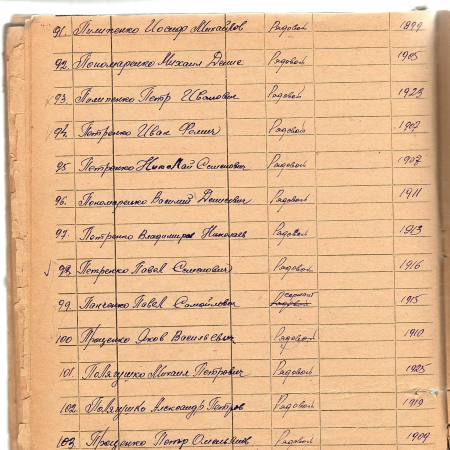 91. Пилипенко Иосиф Михайлов Рядовой 1899
92. Пономаренко Михаил Денис Рядовой 1905
93. Пилипенко Петр Иванович Рядовой 1923
94. Петренко Иван Фомич Рядовой 1907
95 Петренко Николай Семенович Рядовой 1907
96. Пономаренко Василий Денисович Рядовой 1911
97. Петренко Владимир Николаев Рядовой 1913
98. Петренко Павел Семенович Рядовой 1916
99 Панченко Павел Самойлович сержант Рядовой 1915
100 Проценко Яков Васильевич Рядовой 1910
101. Полягушко Михаил Петрович Рядовой 1925
102 Полягушко Александр Петров Рядовой 1919
103. Проценко Петр Рядовой 1909